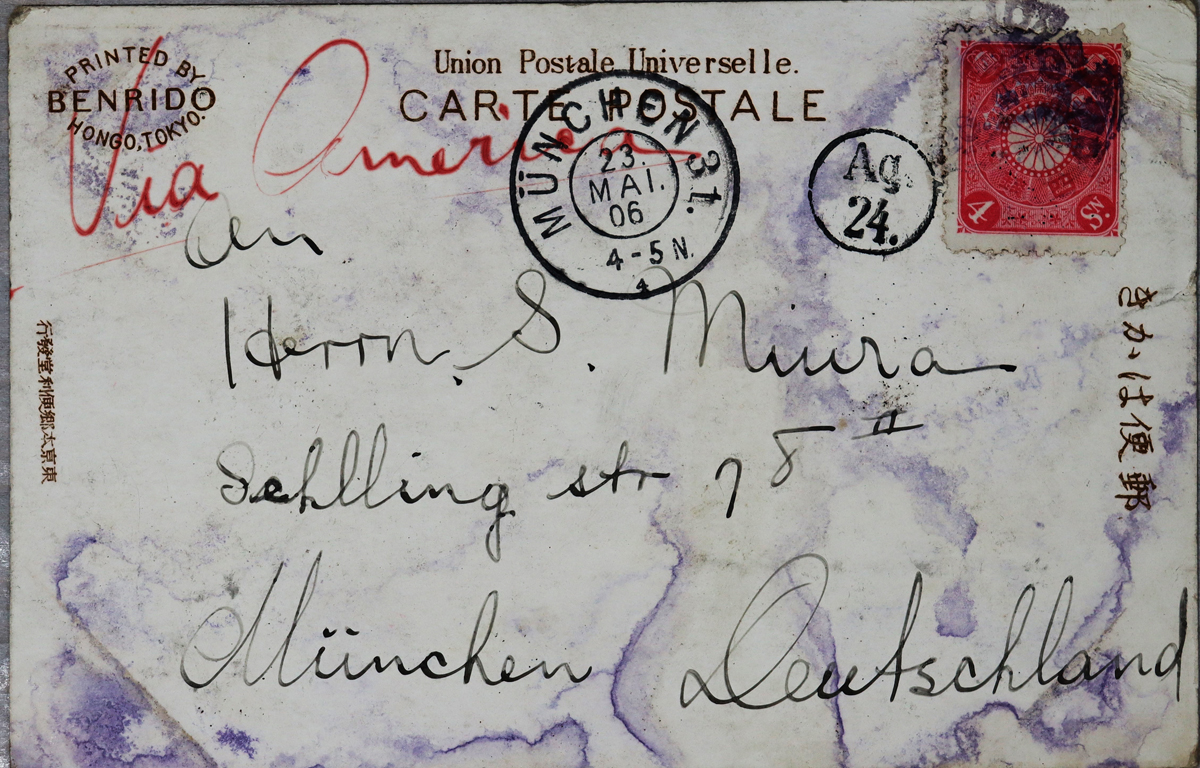 PRINTED BY
BENRIDO
HONGO, TOKYO.
Union Postale Universelle.
CARTE POSTALE
Via America
MÜNCHEN 31.
23.
MAI.
06
4-5 N.
Ag.
24.
4
Sn.
An
Herrn. S. Miura
Schlling str 78 II
München Deutschland
郵便はかき
東京本郷便利堂發行